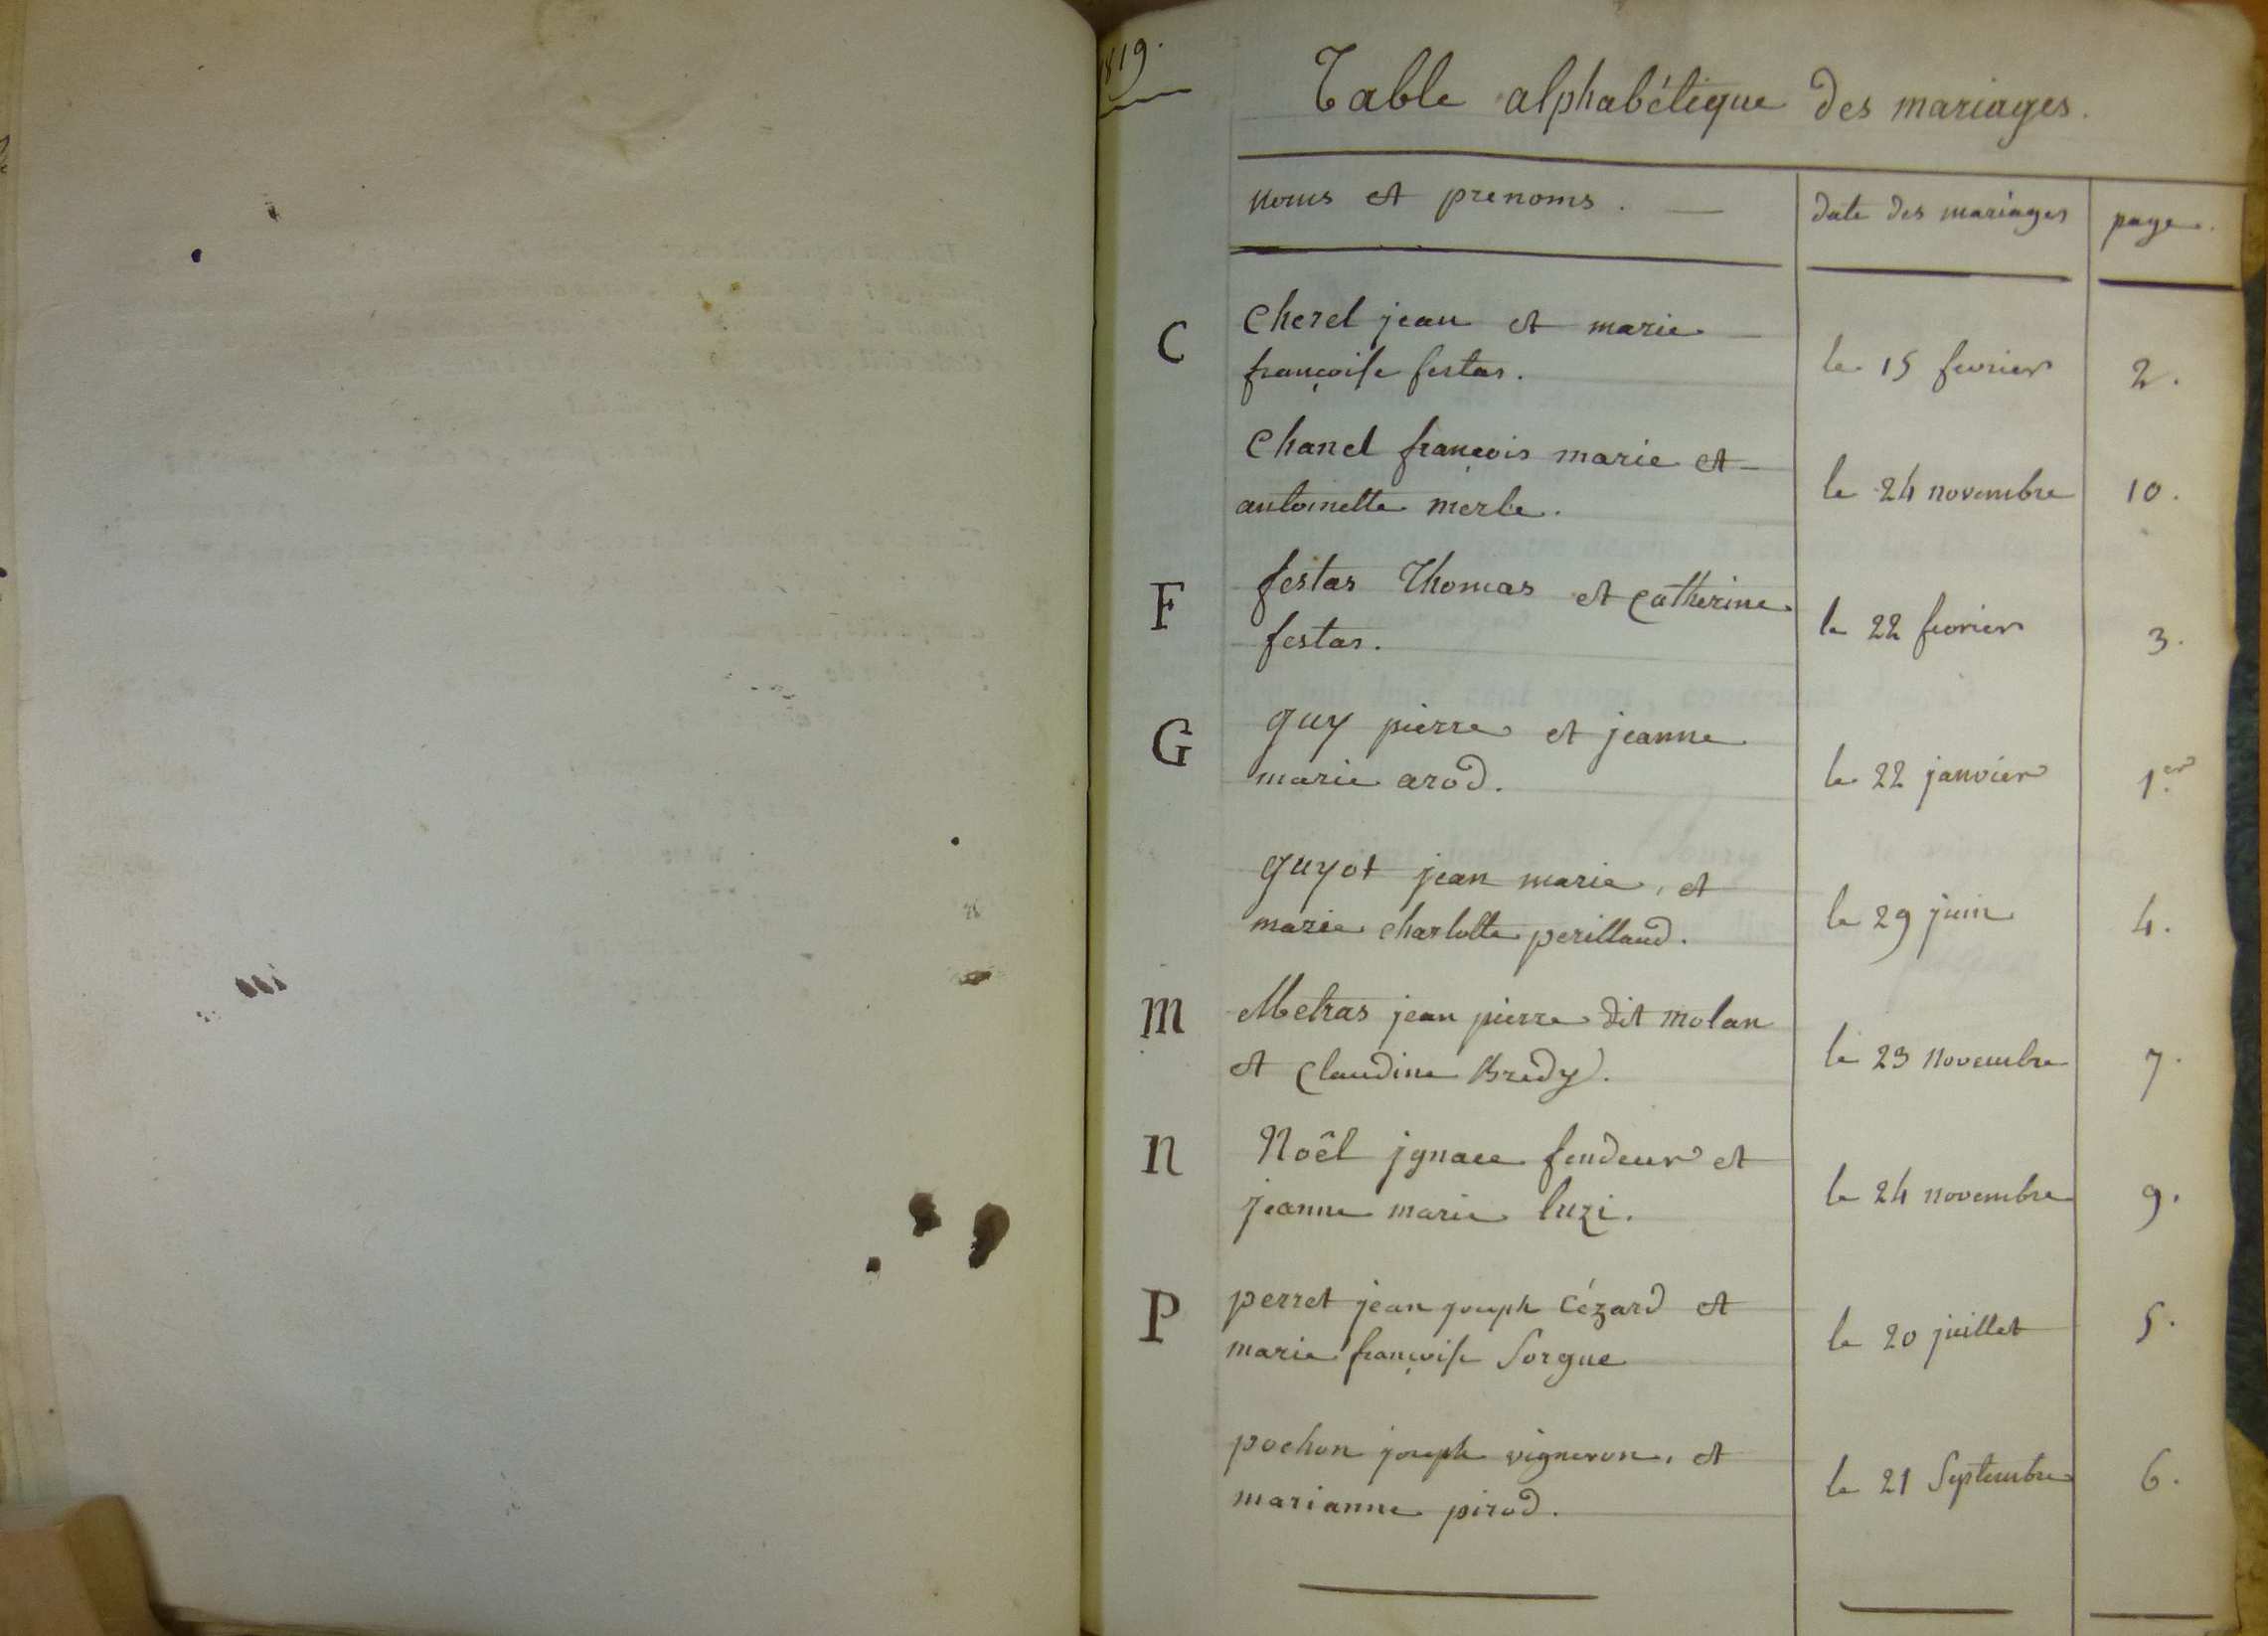 1819.
Table alphabétique des mariages.
noms et prenoms. date des mariages page.
C Cherel jean et marie
françoise festas. le 15 fevrier 2.
Chanel françois marie et
antoinette merle. le 24 novembre 10.
F festas Thomas et Catherine
festas. le 22 fevrier 3.
G guy pierre et jeanne
marie arod. le 22 janvier 1.er
guyot jean marie, et
marie charlotte perillaud. le 29 juin 4.
M Metras jean pierre dit molan
et Claudine Bredy. le 23 novembre 7.
N Noêl jgnace fendeur et
jeanne marie luzi. le 24 novembre 9.
P perret jean joseph Cézard et
marie françoise Sorgue le 20 juillet 5.
pochon joseph vigneron, et
marianne pirod. le 21 Septembre 6.